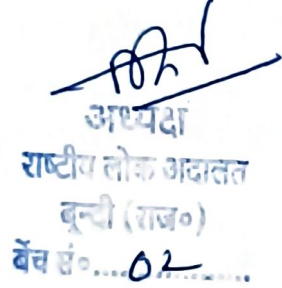 अध्यक्ष
राष्टीय लोक अदालत
बून्दी (राज०)
बेंच सं०....02........